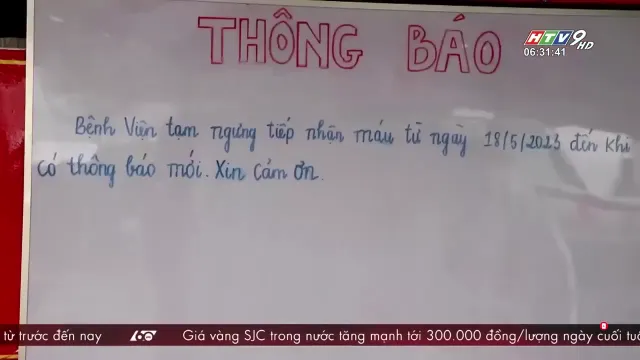 THÔNG BÁO
HTV9 HD
06:31:41
Bệnh Viện tạm ngưng tiếp nhận máu từ ngày 18/5/2023 đến khi
có thông báo mới. Xin cảm ơn.
từ trước đến nay 60 Giá vàng SJC trong nước tăng mạnh tới 300.000 đồng/lượng ngày cuối tuầ